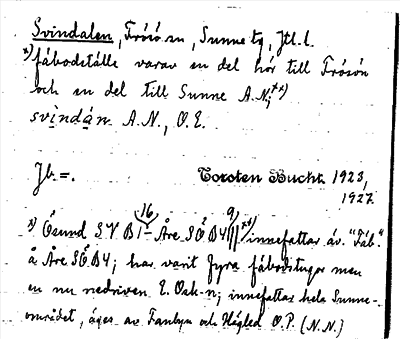 Svindalen, Frösö sn, Sunne tg, Jtl. l.
x) fäbodställe varav en del hör till Frösön
och en del till Sunne A.N.; xx)
svindán A.N., O.E.
Jb. =. Torsten Bucht 1923,
1927.
16 9)
x) Ösund SV B1 – Åre SÖ B4 xx) innefattar äv. "Fäb."
å Åre SÖ B4; har varit fyra fäbodstugor men
en nu nedriven E. Oak-n; innefattar hela Sunne-
området, äges av Fanbyn och Hägled O.P. (N.N.)